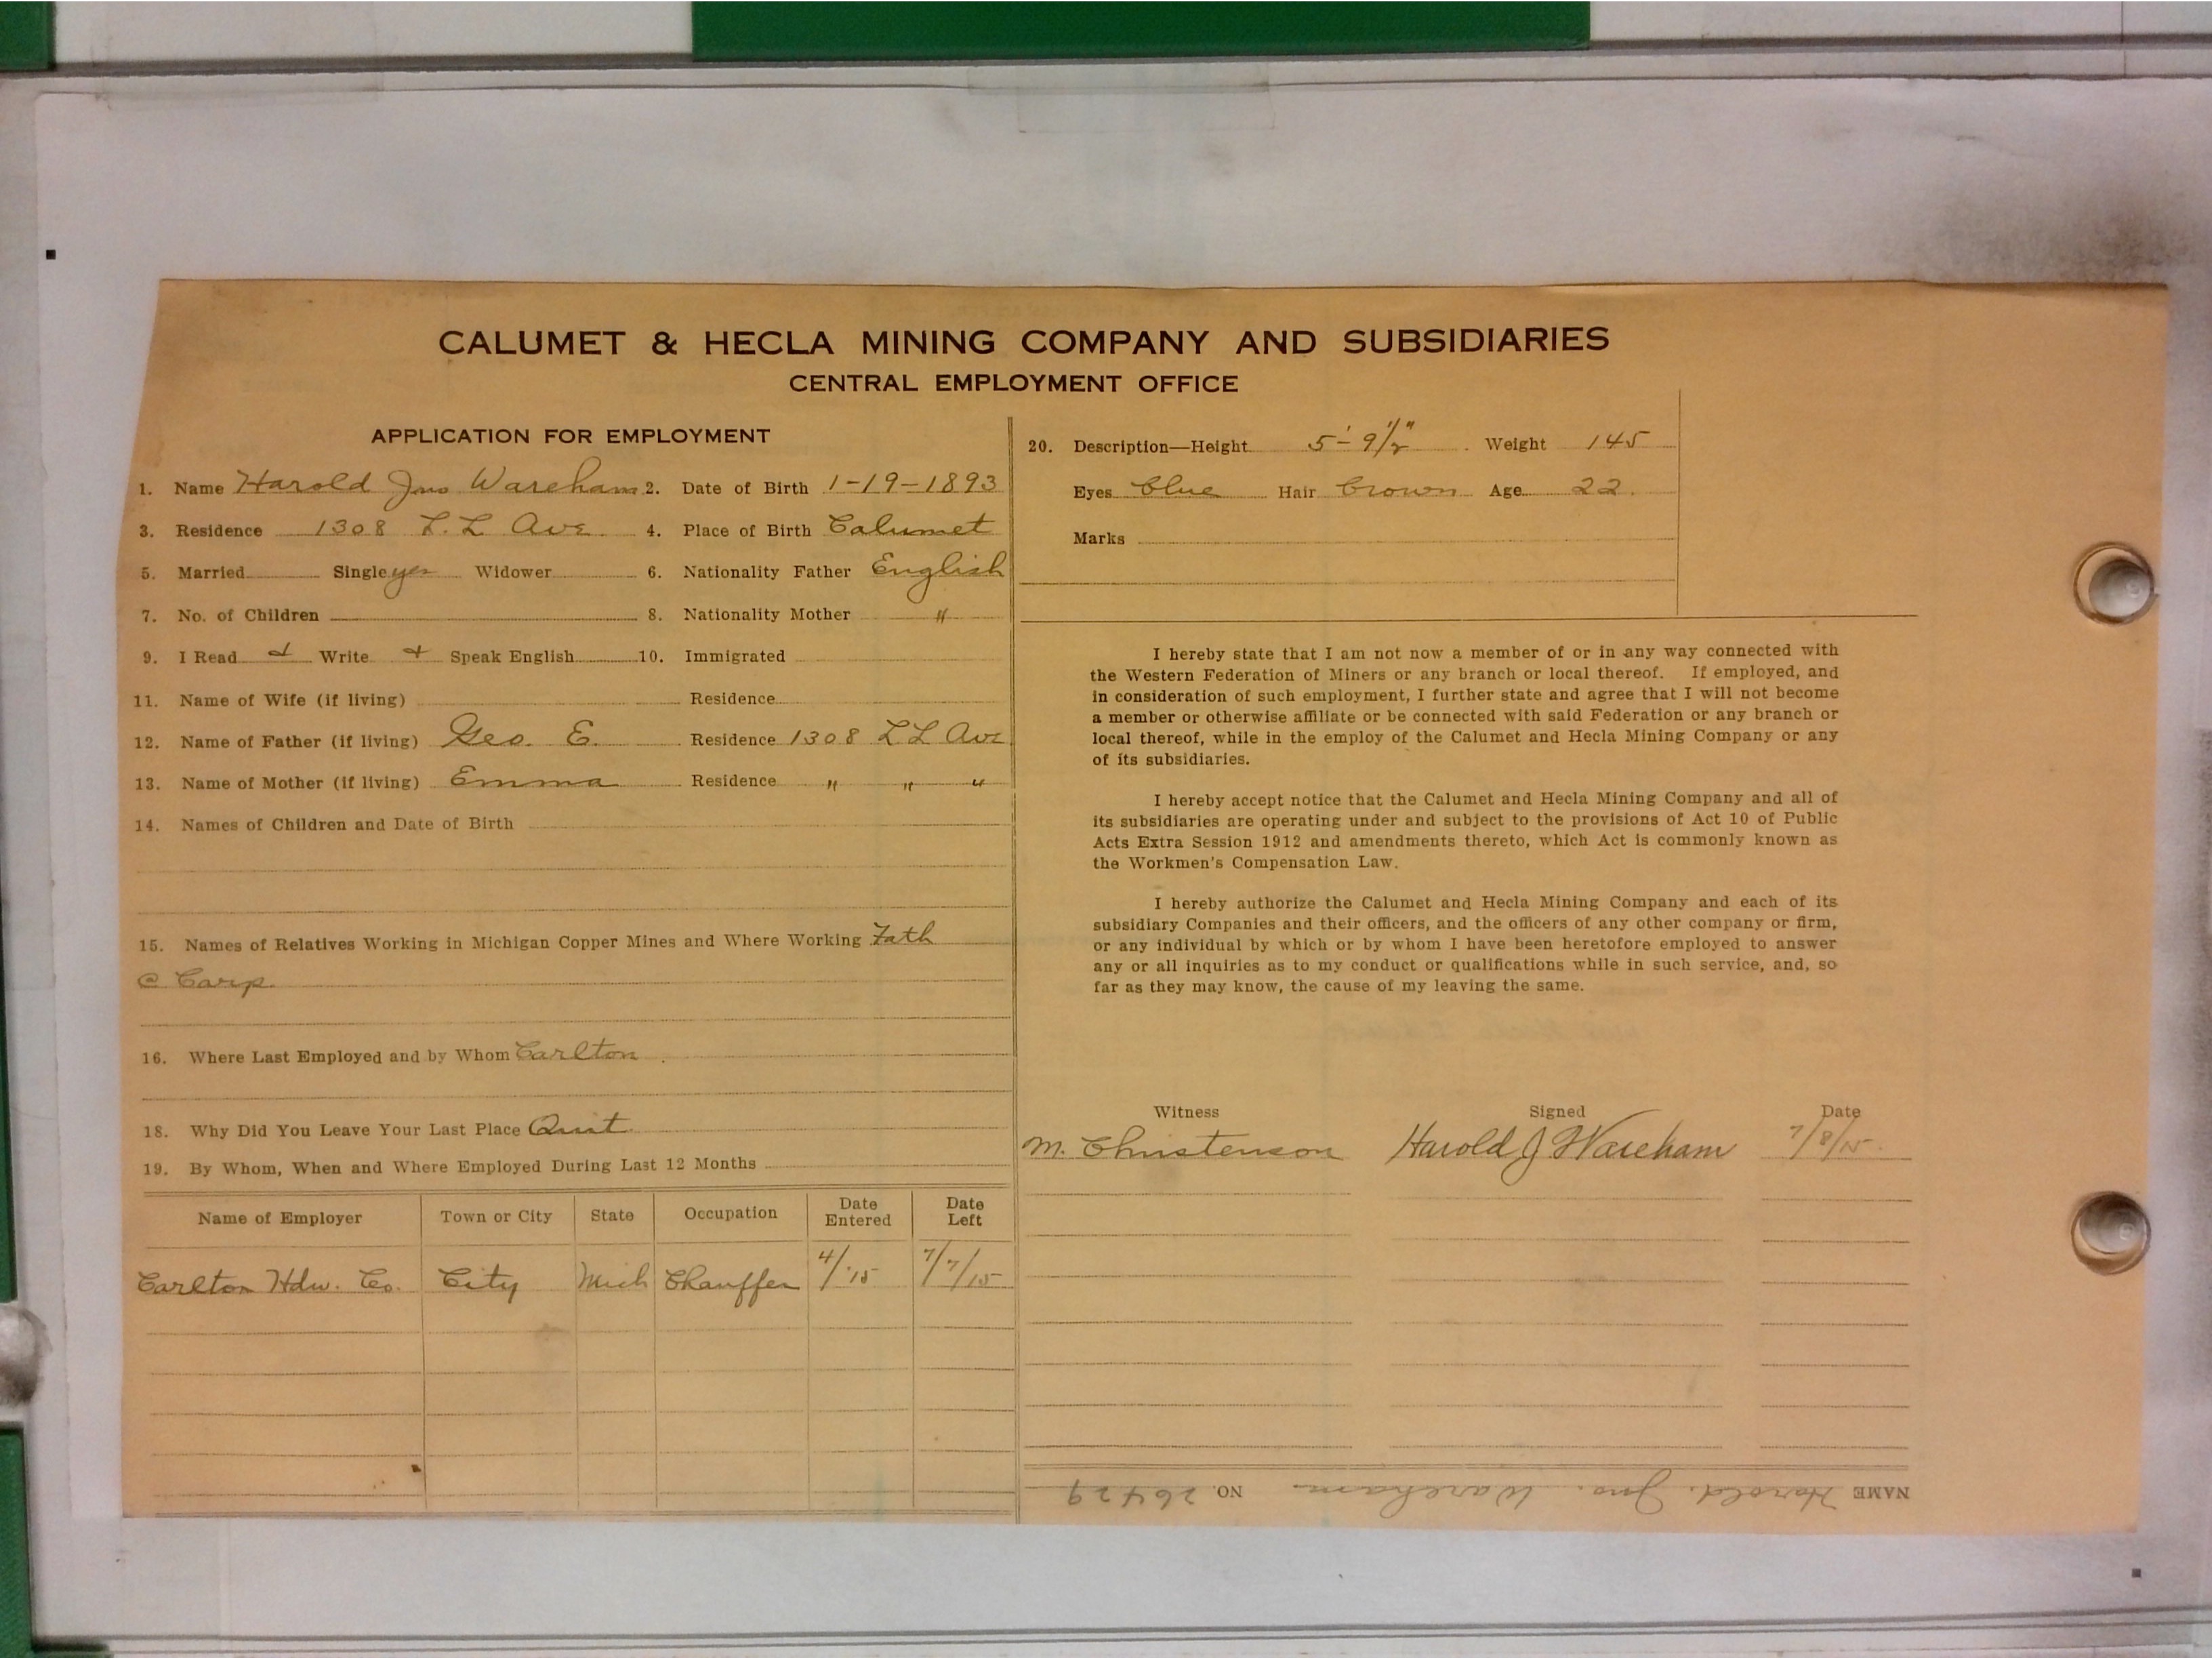 CALUMET & HECLA MINING COMPANY AND SUBSIDIARIES
CENTRAL EMPLOYMENT OFFICE
APPLICATION FOR EMPLOYMENT
1. Name Harold Jno Wareham 2. Date of Birth 1-19-1893
3. Residence 1308 L.L Ave 4. Place of Birth Calumet
5. Married Single yes Widower 6. Nationality Father English
7. No. of Children 8. Nationality Mother "
9. I Read & Write & Speak English 10. Immigrated
11. Name of Wife (if living) Residence
12. Name of Father (if living) Geo. E. Residence 1308 LL Ave
13. Name of Mother (if living) Emma Residence " " "
14. Names of Children and Date of Birth
15. Names of Relatives Working in Michigan Copper Mines and Where Working Fath
C Carp
16. Where Last Employed and by Whom Carlton
18. Why Did You Leave Your Last Place Quit
19. By Whom, When and Where Employed During Last 12 Months
Name of Employer Town or City State Occupation Date Entered Date Left
Carlton Hdw. Co. City Mich Chauffer 4/'15 7/7/15
20. Description—Height 5'-9 1/2" Weight 145
Eyes blue Hair brown Age 22.
Marks
I hereby state that I am not now a member of or in any way connected with
the Western Federation of Miners or any branch or local thereof. If employed, and
in consideration of such employment, I further state and agree that I will not become
a member or otherwise affiliate or be connected with said Federation or any branch or
local thereof, while in the employ of the Calumet and Hecla Mining Company or any
of its subsidiaries.
I hereby accept notice that the Calumet and Hecla Mining Company and all of
its subsidiaries are operating under and subject to the provisions of Act 10 of Public
Acts Extra Session 1912 and amendments thereto, which Act is commonly known as
the Workmen's Compensation Law.
I hereby authorize the Calumet and Hecla Mining Company and each of its
subsidiary Companies and their officers, and the officers of any other company or firm,
or any individual by which or by whom I have been heretofore employed to answer
any or all inquiries as to my conduct or qualifications while in such service, and, so
far as they may know, the cause of my leaving the same.
Witness Signed Date
M. Christenson Harold J Wareham 7/8/15.
NAME Harold. Jno. Wareham NO. 26429